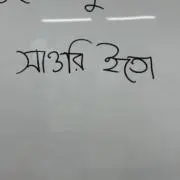 সাওরি ইতো